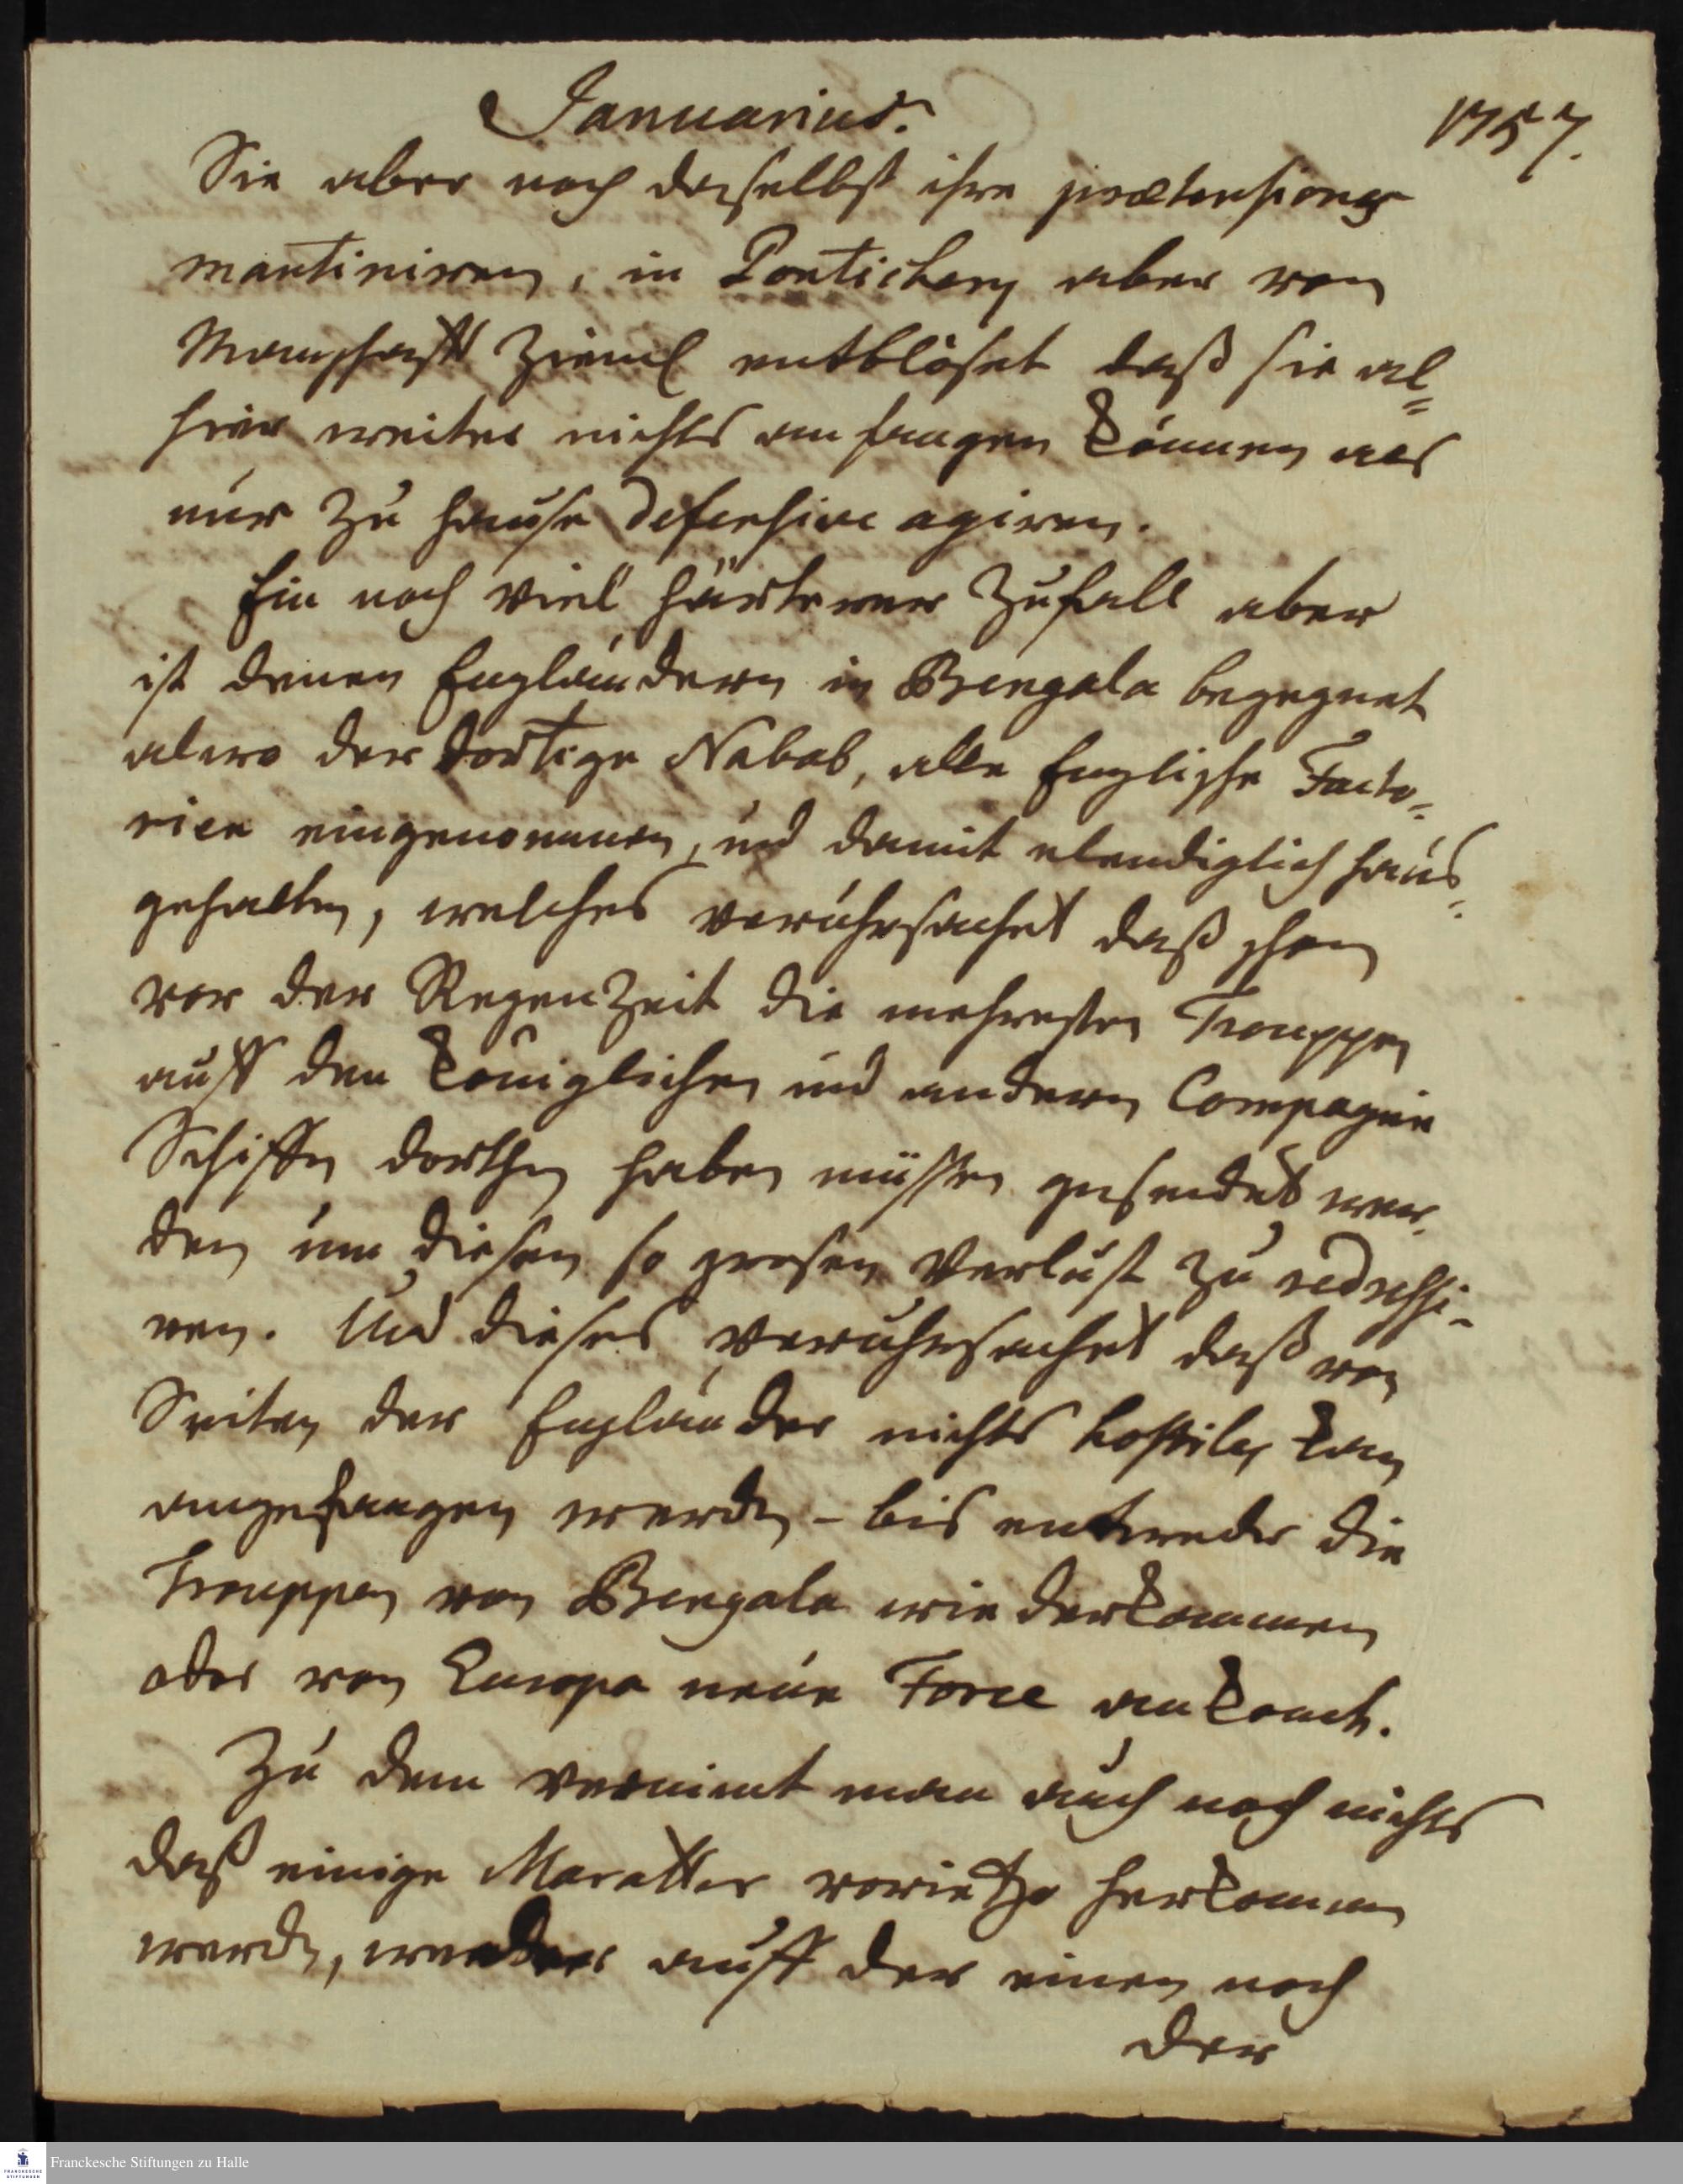 Januarius.
1757.
Sie aber noch daselbst ihre prætensiones
mantiniren, in Pontichery aber von
Manschafft Zieml entblöset daß sie al=
hier weiter nichts anfangen können als
nur zu Hause defensive agiren.
Ein noch viel härterer Zufall aber
ist denen Engländern in Bengala begegnet
alwo der dortige Nabab, alle Englische Facto=
rien eingenommen, und damit elendiglich haus=
gehalten, welches veruhrsachet daß schon
vor der Regen Zeit die mehresten Trouppen
auff den Königlichen und andern Compagnie
Schiffen dorthin haben müssen gesendet wer=
den um diesen so grosen Verlust zu redressi-
ren. Und dieses veruhrsachet daß von
Seiten der Engländer nichts hostiles kan
angefangen werden - bis entweder die
Trouppen von Bengala wiederkommen
oder von Europa neue Force ankomt.
Zu dem vernimt man auch noch nichts
daß einige Maratter vorietzo herkommen
werden, weder auff der einen noch
der
Franckesche Stiftungen zu Halle
FRANCKESCHE
STIFTUNGEN